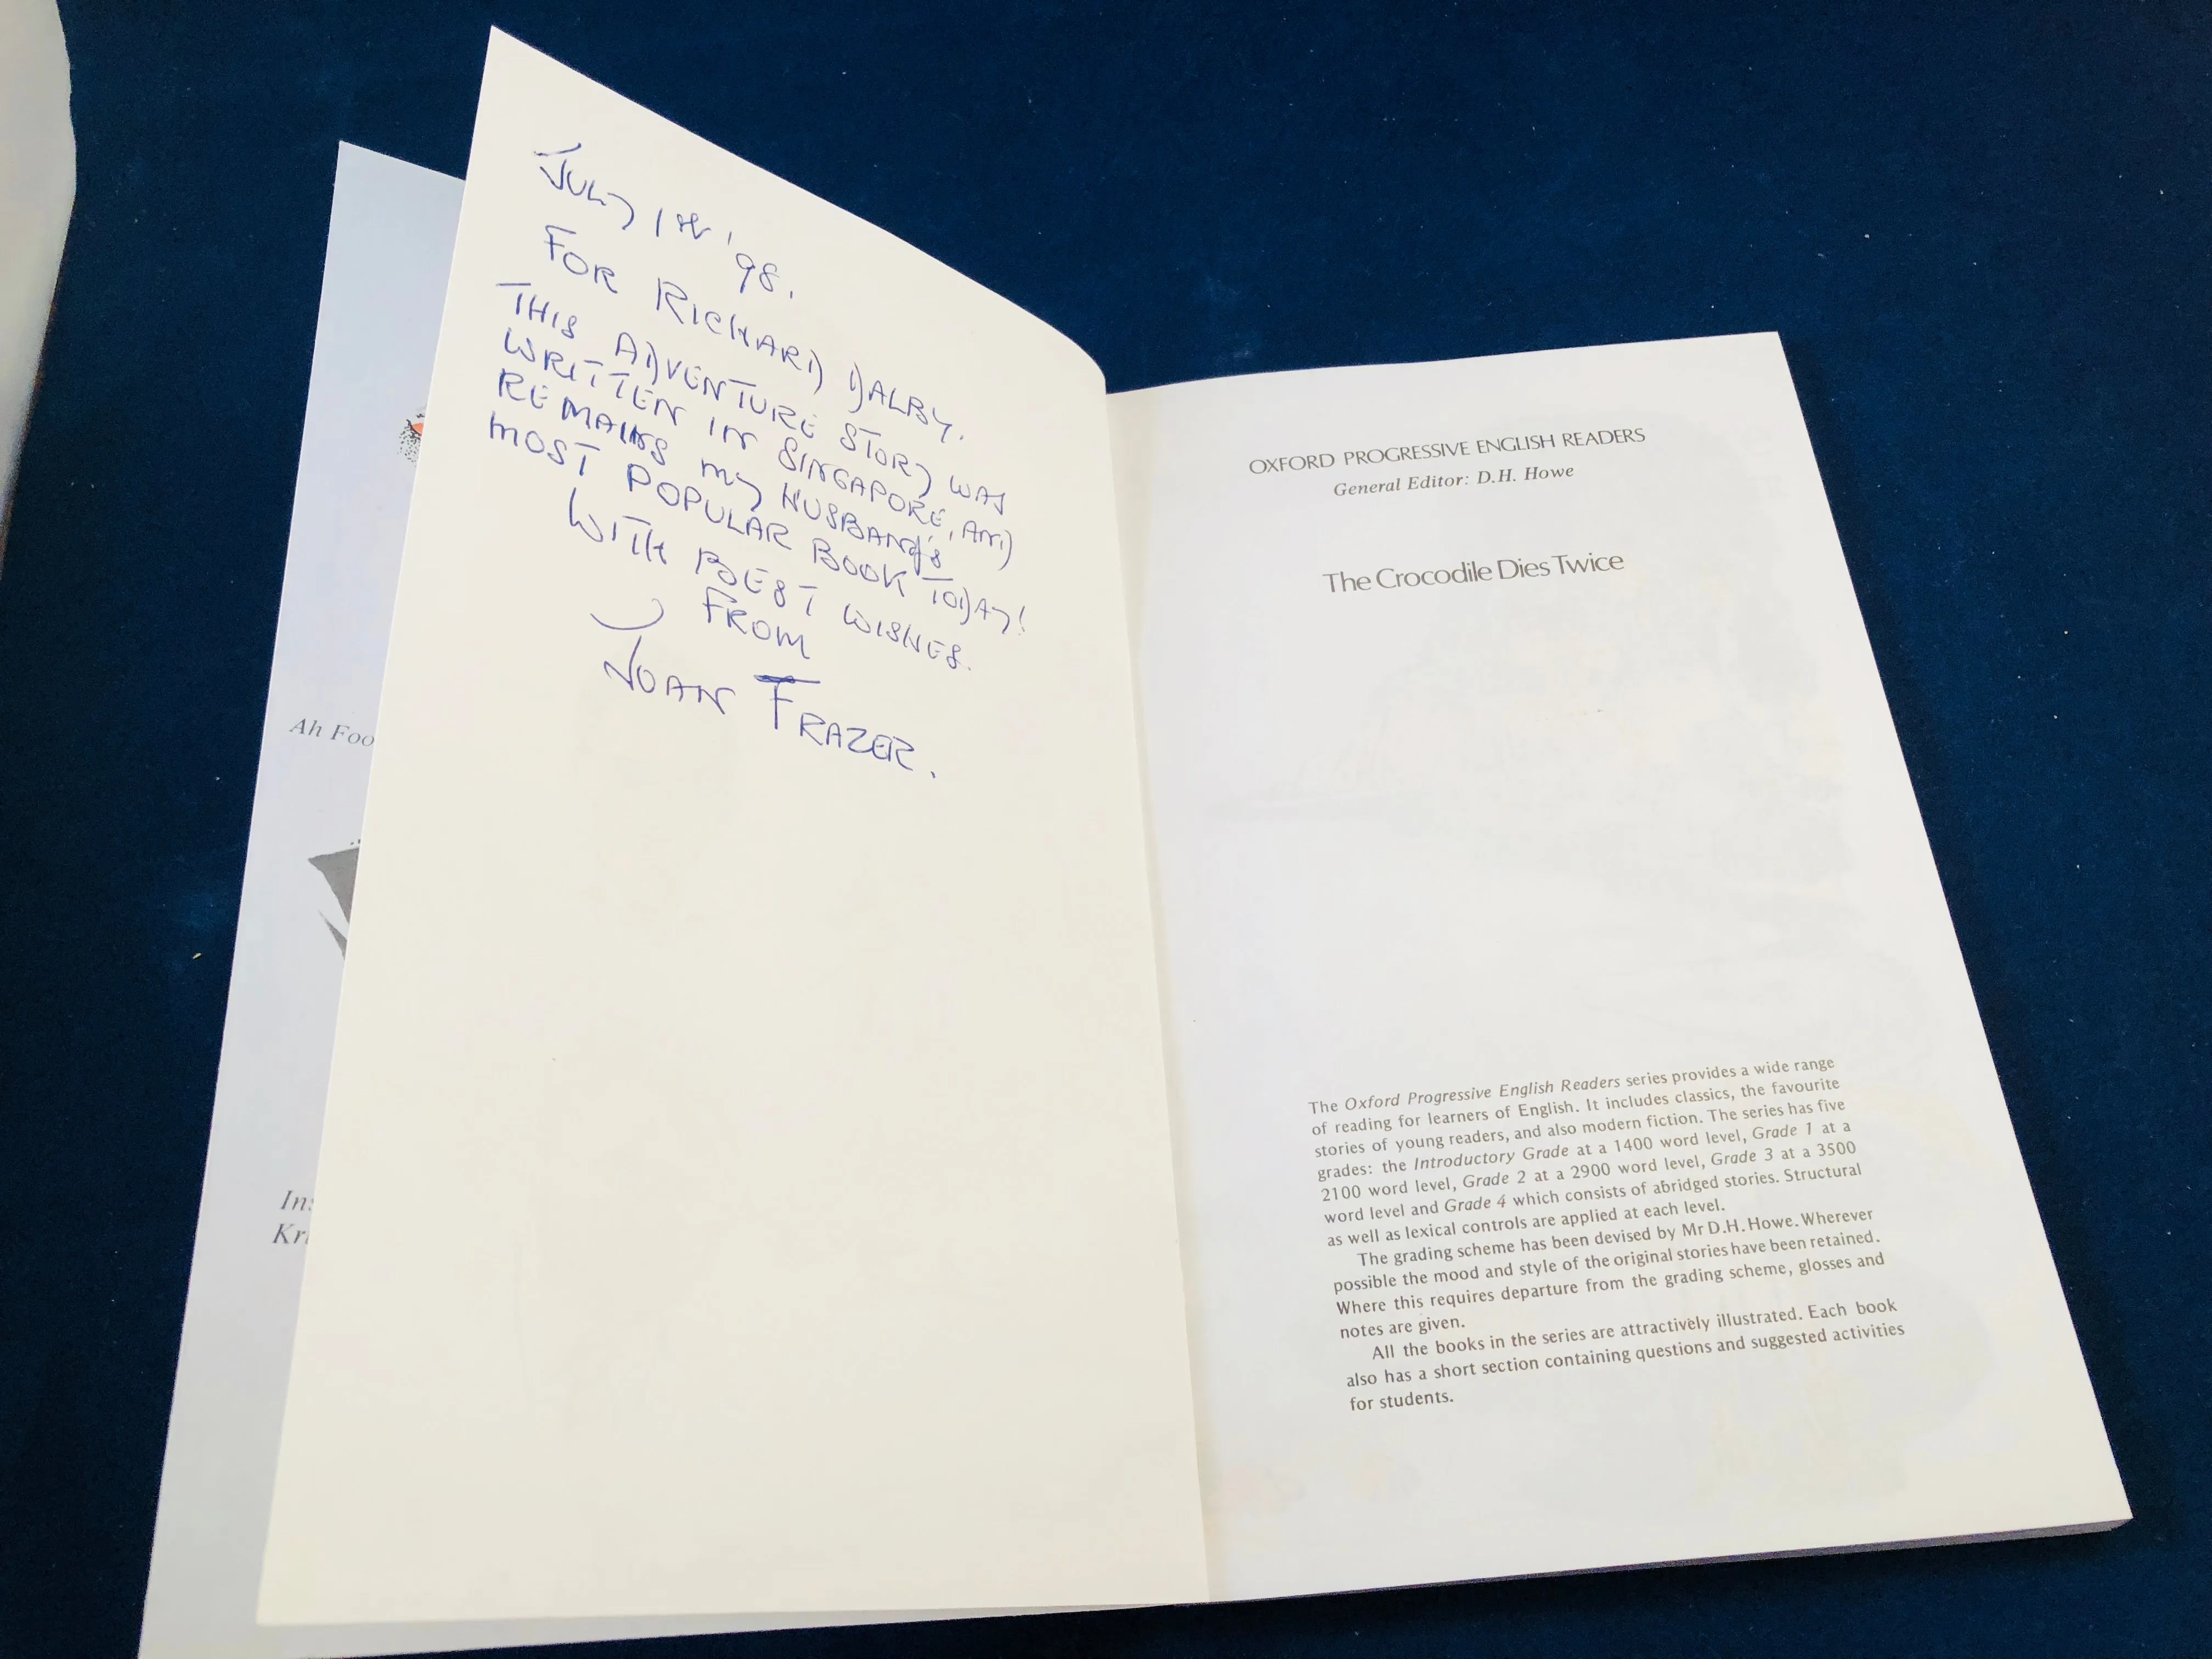 JULY 1st '98.
FOR RICHARD DALBY.
THIS ADVENTURE STORY WAS
WRITTEN IN SINGAPORE, AND
REMAINS MY HUSBAND'S
MOST POPULAR BOOK TODAY!
WITH BEST WISHES.
FROM
JOAN FRAZER.
Ah Foo
Ins
Kri
OXFORD PROGRESSIVE ENGLISH READERS
General Editor: D.H. Howe
The Crocodile Dies Twice
The Oxford Progressive English Readers series provides a wide range
of reading for learners of English. It includes classics, the favourite
stories of young readers, and also modern fiction. The series has five
grades: the Introductory Grade at a 1400 word level, Grade 1 at a
2100 word level, Grade 2 at a 2900 word level, Grade 3 at a 3500
word level and Grade 4 which consists of abridged stories. Structural
as well as lexical controls are applied at each level.
The grading scheme has been devised by Mr D.H. Howe. Wherever
possible the mood and style of the original stories have been retained.
Where this requires departure from the grading scheme, glosses and
notes are given.
All the books in the series are attractively illustrated. Each book
also has a short section containing questions and suggested activities
for students.